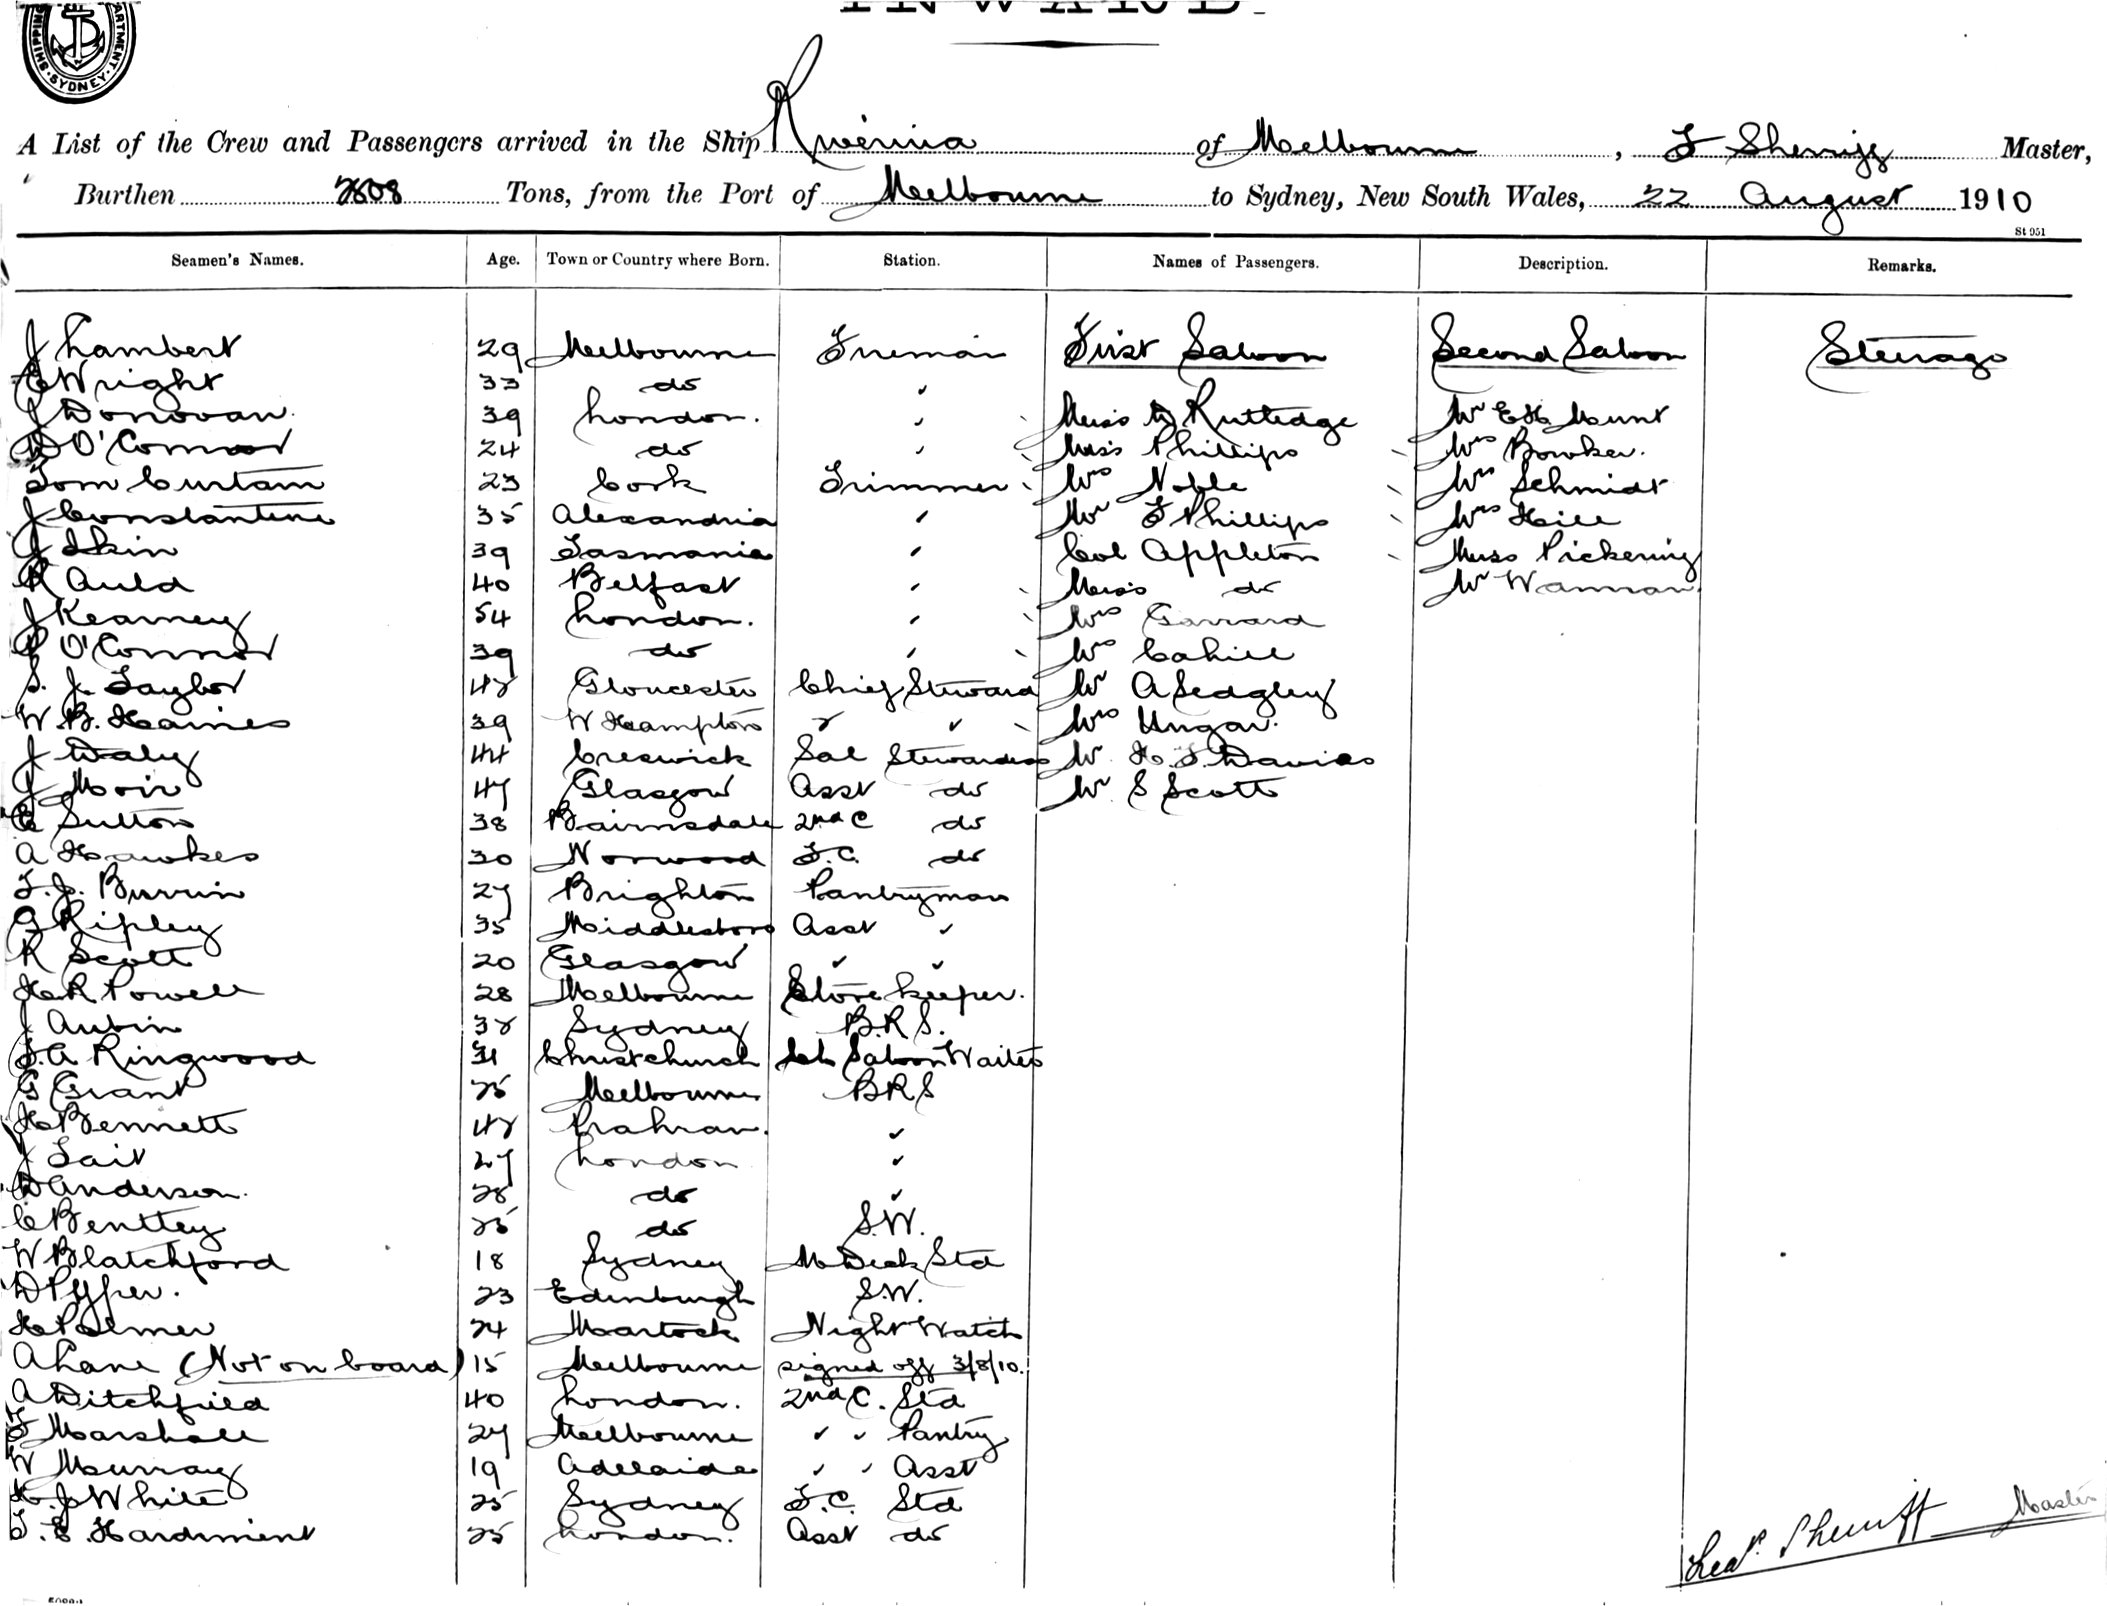 SHIPPING DEPARTMENT SYDNEY
INWARD.
A List of the Crew and Passengers arrived in the Ship Riverina of Melbourne, F Sherriff Master,
Burthen 2808 Tons, from the Port of Melbourne to Sydney, New South Wales, 22 August 1910
St 951
Seamen's Names. Age. Town or Country where Born. Station. Names of Passengers. Description. Remarks.
J Lambert 29 Melbourne Fireman First Saloon Second Saloon Steerage
C Wright 33 do "
J Donovan. 39 London. " Miss Ruttedge Mr E H Mount
D O'Connor 24 do " Miss Phillips Mrs Bowker.
Tom Curtain 23 Cork Trimmer Mrs Noble Mrs Schmidt
J Constantine 35 Alexandria " Mr F Phillips Mrs Hill
J Skin 39 Tasmania " Col Appleton Miss Pickering
R Auld 40 Belfast " Miss do Mr Wannan
J Kearney 54 London. " Mrs Garrard
P O'Connor 39 do " Mrs Cahill
S. J. Taylor 48 Gloucester Chief Steward Mr A Sedgley
W. B. Haines 39 W Hampton " " Mrs Ungar.
J Daly 44 Creswick Sal Stewardess Mr H. J. Davies
J Moir 47 Glasgow Asst do Mr S Scott
C Sutton 38 Bairnsdale 2nd C do
A Hawkes 30 Norwood F.C. do
T. J. Burrin 27 Brighton Pantryman
G Ripley 35 Middlesboro Asst "
R Scott 20 Glasgow " "
H R Powell 28 Melbourne Storekeeper.
J Aubin 38 Sydney B.R.S.
J. A Ringwood 31 Christchurch Ch Saloon Waiter
G Grant 25 Melbourne BRS
H Bennett 48 Prahran. "
J Tait 27 London "
D Anderson. 28 do "
C Bentley 25 do S.W.
W Blatchford 18 Sydney M Deck Std
D Pyper. 23 Edinburgh S.W.
H Palmer 24 Martock Night Watch
A Lane (Not on board) 15 Melbourne signed off 3/8/10.
A Ditchfield 40 London. 2nd C. Std
F Marshall 27 Melbourne " " Pantry
W Murray 19 Adelaide " " Asst
H. J White 25 Sydney F.C. Std
T. E. Hardiment 25 London. Asst do
Sherriff Master